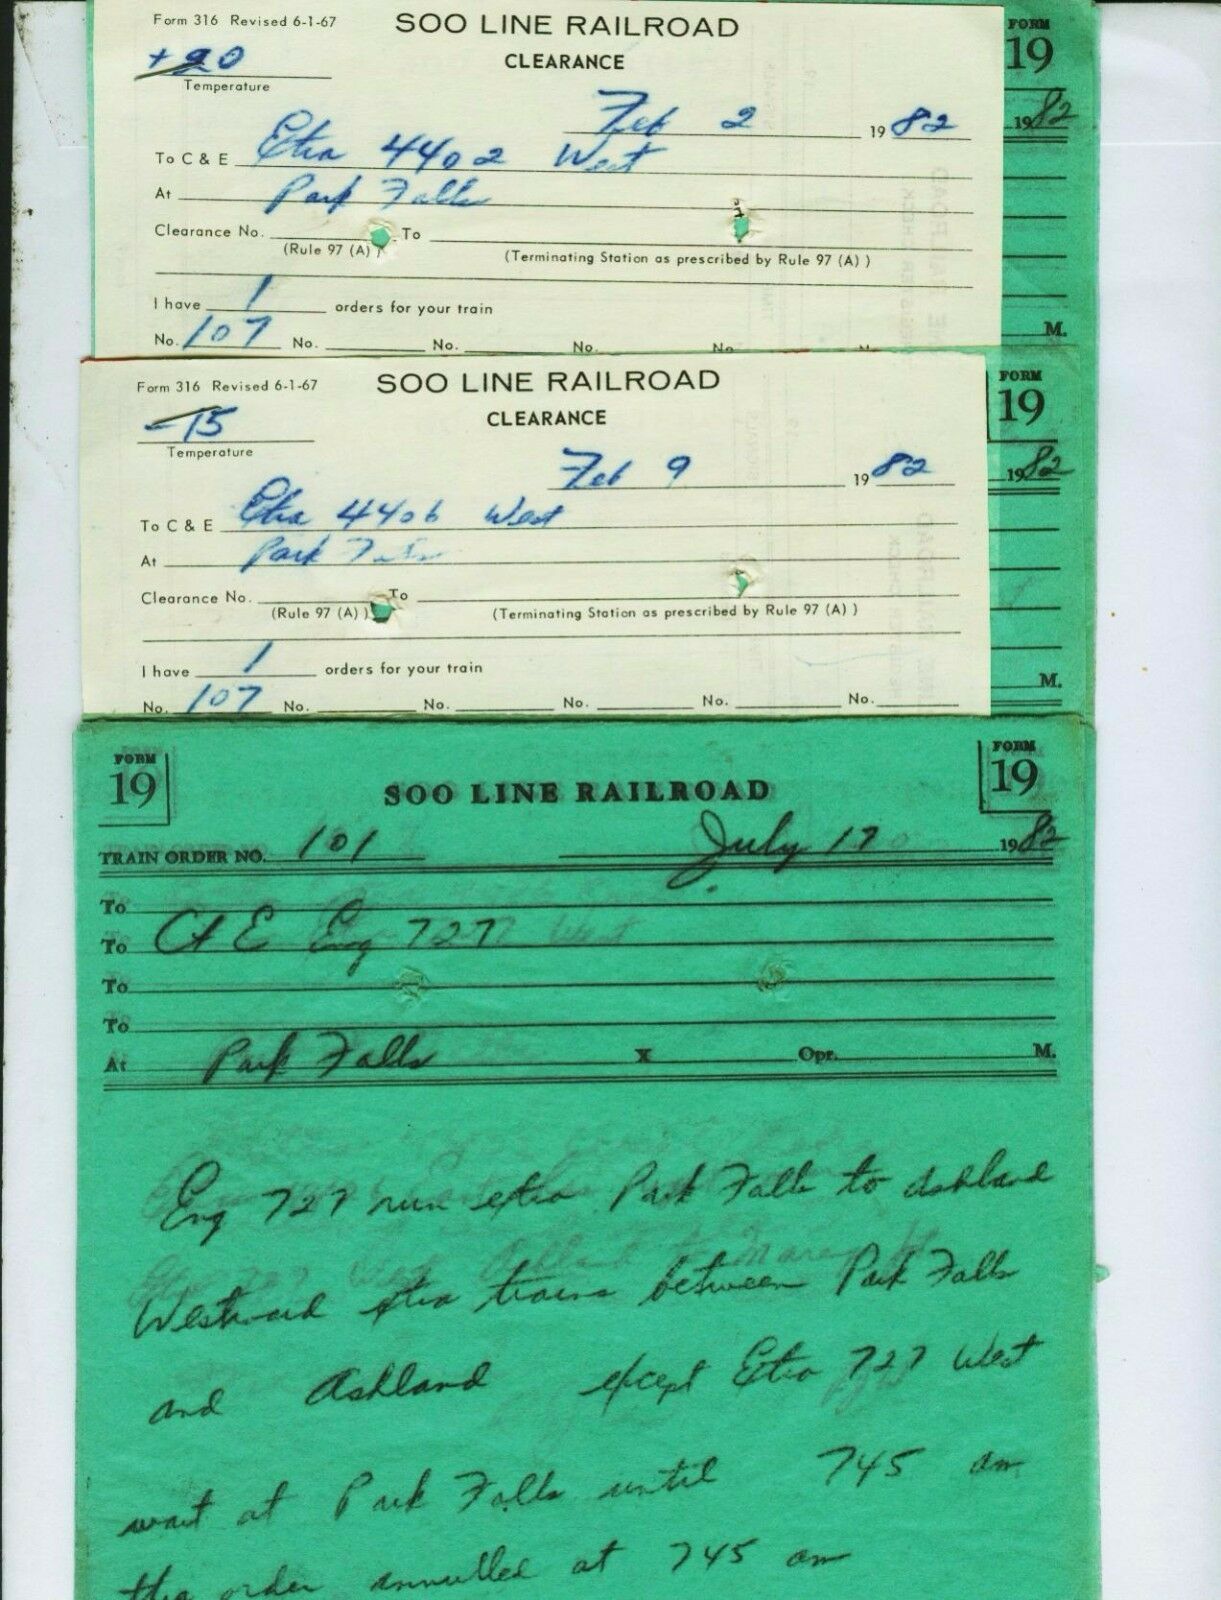 Form 316 Revised 6-1-67 SOO LINE RAILROAD
FORM 19
+20
Temperature
CLEARANCE
Feb 2 1982
1982
To C & E Extra 4402 West
At Park Falls
Clearance No. To
(Rule 97 (A) ) (Terminating Station as prescribed by Rule 97 (A) )
I have 1 orders for your train
M.
No. 107 No. No. No. No. No.
Form 316 Revised 6-1-67 SOO LINE RAILROAD
FORM 19
-15
Temperature
CLEARANCE
Feb 9 1982
1982
To C & E Extra 4406 West
At Park Falls
Clearance No. To
(Rule 97 (A) ) (Terminating Station as prescribed by Rule 97 (A) )
I have 1 orders for your train
M.
No. 107 No. No. No. No. No.
FORM 19 SOO LINE RAILROAD FORM 19
TRAIN ORDER NO. 101 July 17 1982
To
To C & E Eng 727
To
To
At Park Falls X Opr. M.
Eng 727 run extra Park Falls to Ashland
Westward extra trains between Park Falls
and Ashland except Extra 727 West
wait at Park Falls until 745 am
this order annulled at 745 am